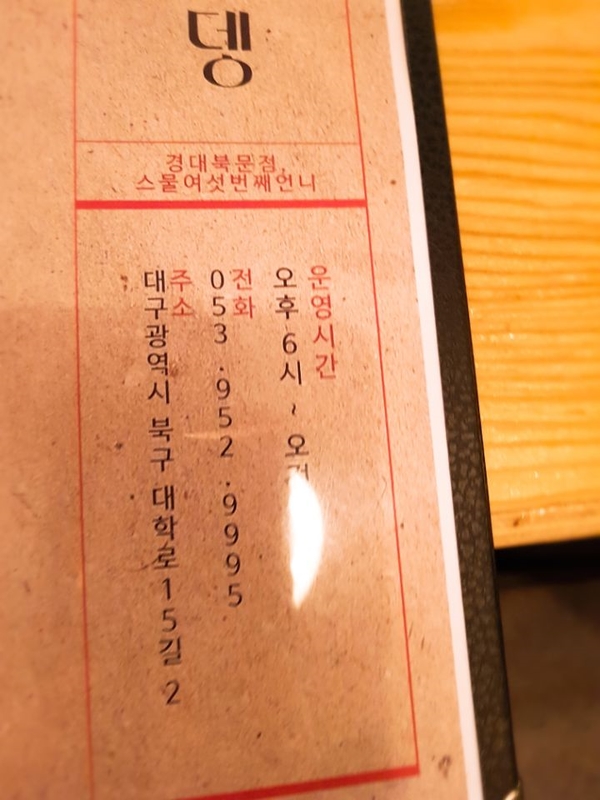 뎅
경대북문점,
스물여섯번째언니
운영시간
오후 6시 ~
전화
053.952.9995
주소
대구광역시 북구 대학로15길 2